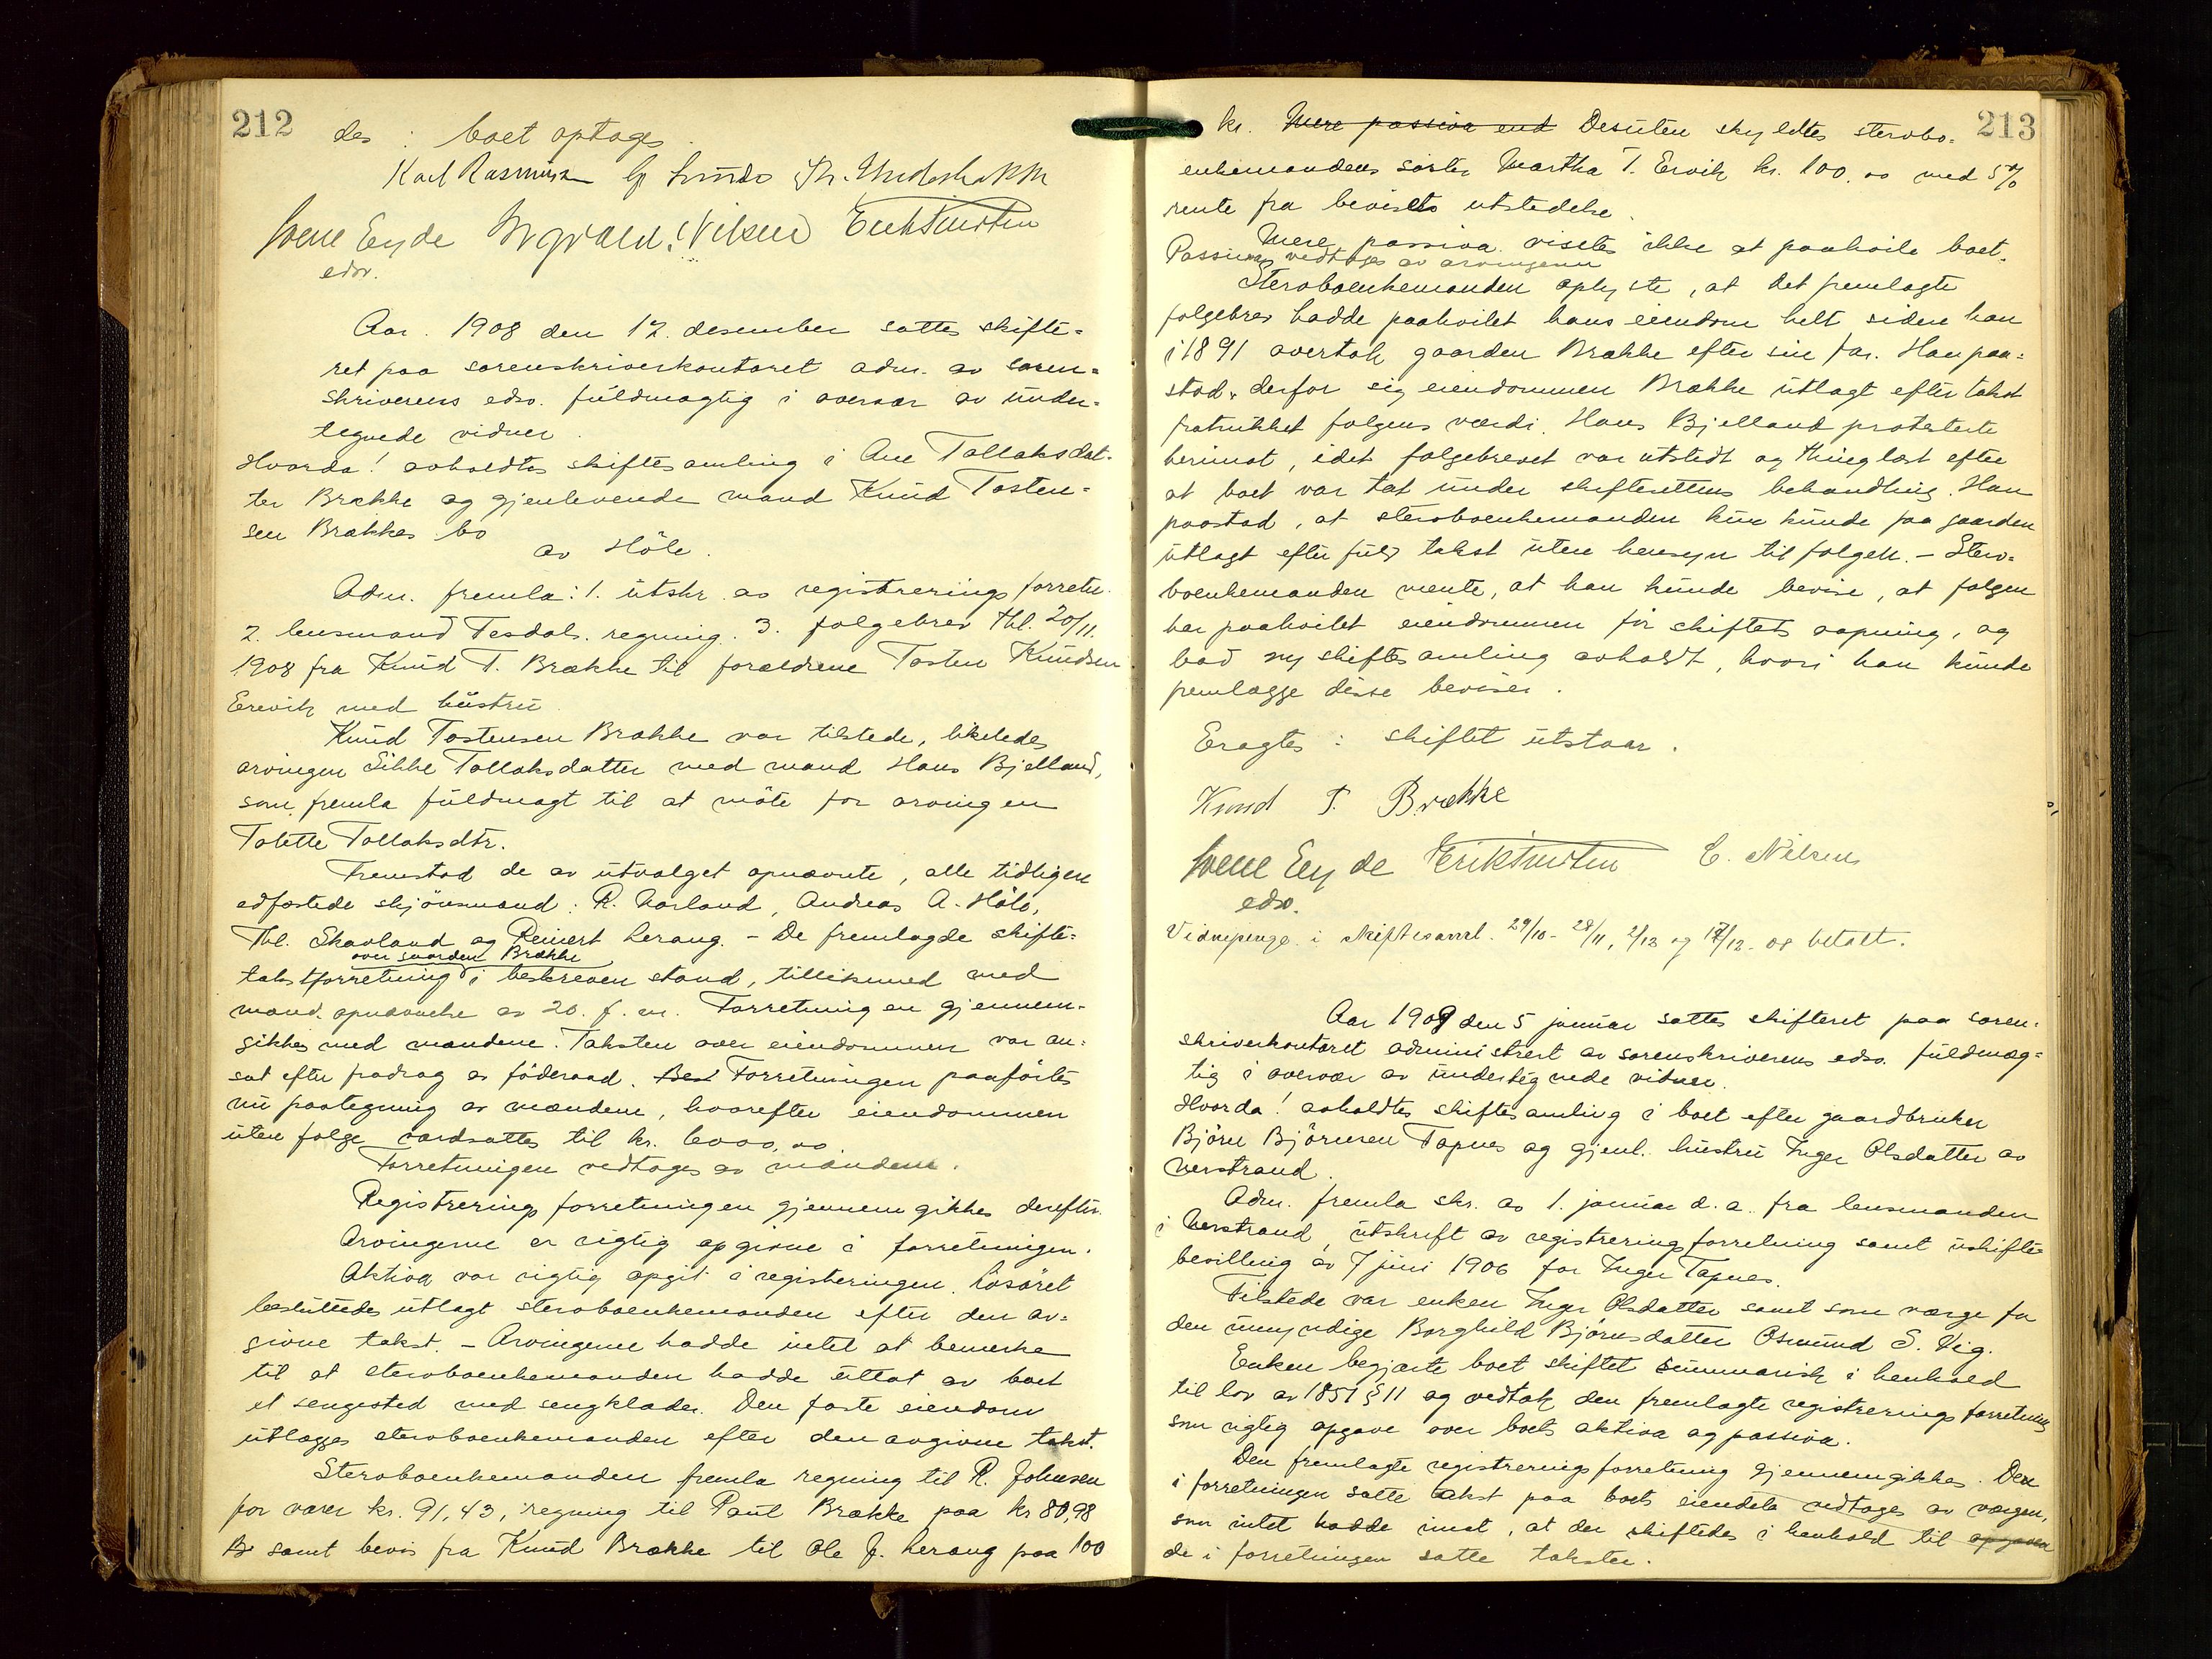 212
des: boet optages.
Karl Rasmussen
Svene Eyde Ingvald Nilsen Erik Knudsen
edsv.
Aar. 1908 den 17. desember sattes skifte-
ret paa sorenskriverkontoret adm. av soren-
skriverens edsv. fuldmægtig i overvær av under-
tegnede vidner.
Hvorda! avholdtes skiftesamling i Ane Tollaksdat-
ter Brække og gjenlevende mand Knud Tosten-
sen Brækkes bo
av Höle.
Adm. fremla: 1. utskr. av registreringsforretn.
2. lensmand Tesdals regning. 3. folgebrev thl. 20/11.
1908 fra Knud T. Brække til forældrene Tosten Knudsen
Erevik med hustru.
Knud Tostensen Brække var tilstede, likeledes
arvingen Sikke Tollaksdatter med mand Hans Bjelland,
som fremla fuldmagt til at möte for arvingen
Tolette Tollaksdtr.
Fremstod de av utvalget opnævnte, alle tidligere
edfæstede skjönsmænd: R. Aarland, Andreas A. Höle,
Thl. Skavland og Reinert Lerang. - De fremlagde skifte-
over gaarden Brække
takstforretning i beskreven stand, tillikemed
mænd. opnævnelse av 26. f. m. Forretningen gjennem-
gikkes med mændene. Taksten over eiendommen var an-
sat efter fradrag av föderaad. Forretningen paaförtes
nu paategning av mændene, hvorefter eiendommen
uten folge værdsattes til kr. 6000,00.
Forretningen vedtages av mændene.
Registreringsforretningen gjennemgikkes derefter.
Arvingerne er rigtig opgivne i forretningen.
Aktiva var rigtig opgit i registeringen. Lösöret
besluttedes utlagt stervboenkemanden efter den av-
givne takst. - Arvingerne hadde intet at bemerke
til at stervboenkemanden hadde uttat av boet
et sengested med sengklæder. Den faste eiendom
utlægges stervboenkemanden efter den avgivne takst.
Stervboenkemanden fremla regning til R. Johnsen
for varer kr. 91,43, regning til Paul Brække paa kr 80,98
samt bevis fra Knud Brække til Ole J. Lerang paa 100
213
kr. Mere passiva end Desuten skyldtes stervbo-
enkemandens söster Martha T. Ervik kr. 100.00 med 5%
rente fra bevisets utstedelse.
Mere passiva visstes ikke at paahvile boet.
Passiva vedtages av arvingerne
Stervboenkemanden oplyste, at det fremlagte
folgebrev hadde paahvilet hans eiendom helt siden han
i 1891 overtok gaarden Brække efter sin far. Han paa-
stod derfor sig eiendommen Brække utlagt efter takst
fratrukket folgens værdi. Hans Bjelland protesterte
herimot, idet folgebrevet var utstedt og thinglæst efter
at boet var tat under skifterettens behandling. Han
paastod, at stervboenkemanden kun kunde faa gaarden
utlagt efter fuld takst uten hensyn til folgen. - Sterv-
boenkemanden mente, at han kunde bevise, at folgen
har paahvilet eiendommen för skiftets aapning, og
bad ny skiftesamling avholdt, hvori han kunde
fremlægge disse beviser.
Eragtes: skiftet utstaar.
Knud T. Brække
Svene Eyde Erik Knudsen C. Nilsen
edsv.
Vidnepenge i skiftesaml. 29/10 - 28/11, 2/12 og 17/12 - 08 betalt.
Aar 1909 den 5 januar sattes skifteret paa soren-
skriverkontoret administrert av sorenskriverens edsv. fuldmæg-
tig i overvær av undertegnede vidner.
Hvorda! avholdtes skiftesamling i boet efter gaardbruker
Björn Björnsen Tapnes og gjenl. hustru Inger Olsdatter av
Nerstrand.
Adm. fremla skr. av 1. januar d. a. fra lensmanden
i Nerstrand, utskrift av registreringsforretning samt uskifte-
bevilling av 7 juni 1906 for Inger Tapnes.
Tilstede var enken Inger Olsdatter samt som værge for
den umyndige Borghild Björnsdatter Osmund S. Vig.
Enken begjærte boet skiftet summarisk i henhold
til lov av 1851 § 11 og vedtok den fremlagte registreringsforretning
som rigtig opgave over boets aktiva og passiva.
Den fremlagte registreringsforretning gjennemgikkes. Den
i forretningen satte takst paa boets eiendele vedtoges av værgen,
som intet hadde imot, at der skiftedes i henhold til opgaven
de i forretningen satte takster.